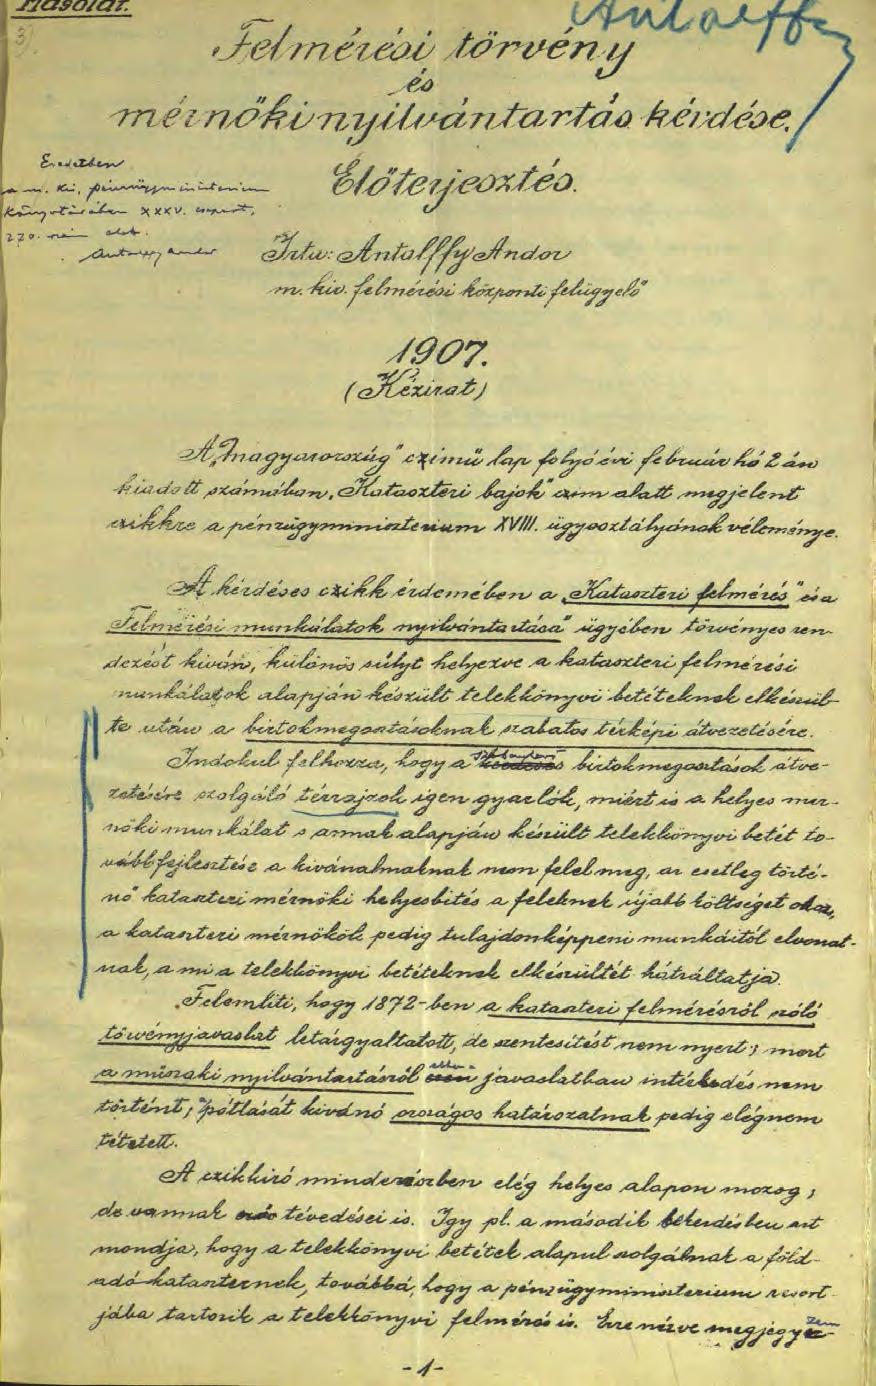 Másolat.
Antalffy
3)
Felmérési törvény
és
mérnöki nyilvántartás kérdése.
Előterjesztés.
Eredetben
a m. kir. pénzügyministerium
könyvtárában XXXV. csoport,
270. szám alatt.
Antalffy Andor
Irta: Antalffy Andor
m. kir. felmérési központi felügyelő
1907.
(Kézirat)
A „Magyarország" czimü lap folyó évi február hó 2 án
kiadott számában „Kataszteri bajok" czim alatt megjelent
czikkre a pénzügyministerium XVIII. ügyosztályának véleménye.
A kérdéses czikk érdemében a „Kataszteri felmérés" és a
Felmérési munkálatok nyilvántartása" ügyében törvényes ren-
dezést kiván, különös súlyt helyezve a kataszteri felmérési
munkálatok alapján készült telekkönyvi betéteknek elkészül-
te után a birtokmegosztásoknak szabatos térképi átvezetésére.
Indokul felhozza, hogy a birtokmegosztások átve-
zetésére szolgáló térrajzok igen gyarlók, miért is a helyes mér-
nöki munkálat s annak alapján készült telekkönyvi betét to-
vábbfejlesztése a kivánalmaknak nem felel meg, az esetleg törté-
nő kataszteri mérnöki helyesbités a feleknek újabb költséget okoz,
a kataszteri mérnökök pedig tulajdonképpeni munkáitól elvonat-
nak, a mi a telekkönyvi betéteknek elkészültét hátráltatja.
Felemliti, hogy 1872-ben a kataszteri felmérésről szóló
törvényjavaslat letárgyaltatott, de szentesitést nem nyert; mert
a müszaki nyilvántartásról javaslatban intézkedés nem
történt; pótlását kivánó országos határozatnak pedig elég nem
tétetett.
A czikkiró mindenészben elég helyes alapon mozog;
de vannak tévedései is. Igy pl. a második bekezdésben azt
mondja, hogy a telekkönyvi betétek alapul szolgálnak a föld-
adó kataszternek, továbbá, hogy a pénzügyministerium resort-
jába tartozik a telekkönyvi felmérés is. Erre nézve megjegyzem
- 1 -